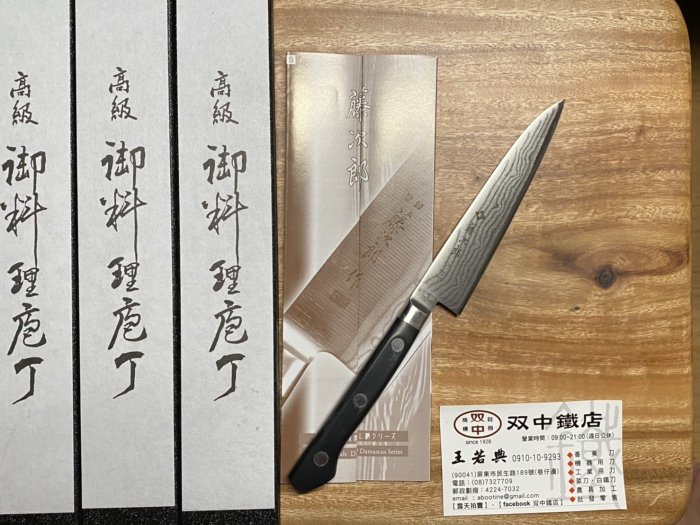 高級
御料理庖丁
高級
御料理庖丁
高級
御料理庖丁
S
藤次郎
登録
藤次郎作
鋼シリーズ
Damascus Series
藤次郎
双中
since 1928
双中鐵店
營業時間：09:00~21:00(週日公休)
王若典 0910-10-9293
(90041)屏東市民生路189號(巷仔邊)
電話：(08)7327709
郵政劃撥：4224-7032
email：abootine@gmail.com
【露天拍賣】、【facebook 双中鐵店】
香蕉刀
機器用刀
工業用刀
菜刀、白鐵刀
農具加工
批發零售